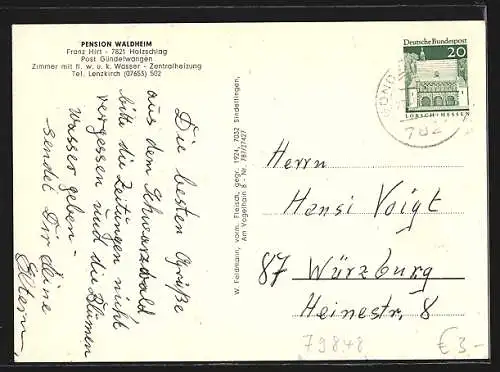 PENSION WALDHEIM
Franz Hirt - 7821 Holzschlag
Post Gündelwangen
Zimmer mit fl. w. u. k. Wasser - Zentralheizung
Tel. Lenzkirch (07653) 502
Die besten Grüße
aus dem Schwarzwald
bitte die Zeitungen nicht
vergessen und die Blumen
wasser geben -
sendet Dir deine
Eltern,
W. Feldmann, vorm. Fleisch, gegr. 1924, 7032 Sindelfingen,
Am Vogelhain 8 · Nr. 787/27427
Deutsche Bundespost
20
LORSCH/HESSEN
782
Herrn
Hansi Voigt
87 Würzburg
Heinestr. 8
79848
€ 3-